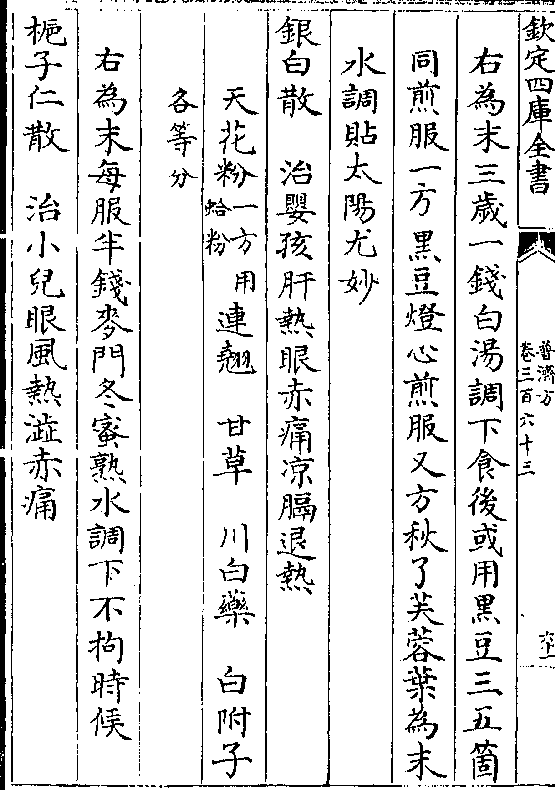 欽定四庫全書
普濟方
卷三百六十三
右為末三歲一錢白湯調下食後或用黑豆三五箇
同煎服一方黑豆燈心煎服又方秋了芙蓉葉為末
水調貼太陽尤妙
銀白散　治嬰孩肝熱眼赤痛凉膈退熱
天花粉一方用蛤粉　連翹　甘草　川白藥　白附子
各等分
右為末每服半錢麥門冬蜜熟水調下不拘時候
梔子仁散　治小兒眼風熱澁赤痛